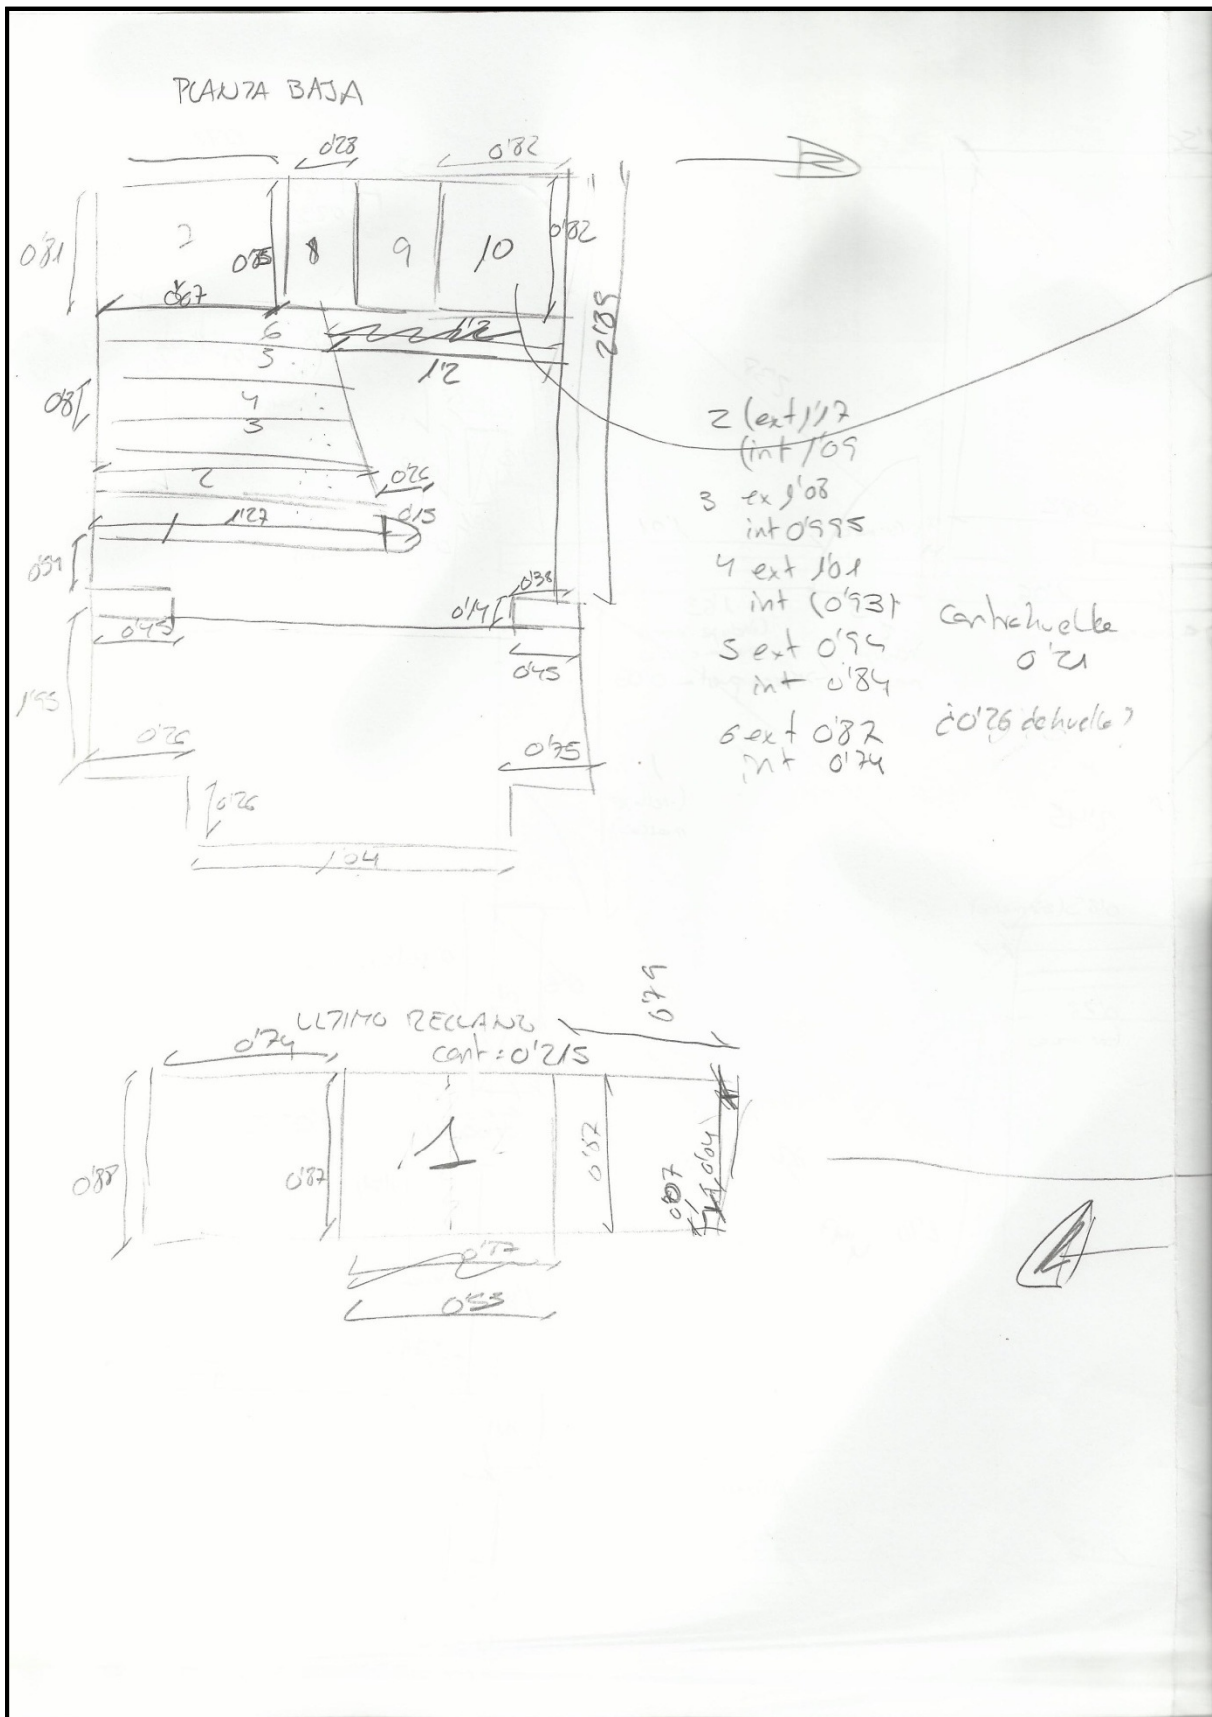 PLANTA BAJA
0'28
0'82
0'81
7
0'85
8
9
10
0'82
0'67
6
1'2
2'89
5
1'2
0'8
4
3
2
0'26
1'27
0'15
0'54
0'38
0'14
0'45
0'45
1'95
0'26
0'75
0'26
1'04
2 (ext) 1'17
(int) 1'09
3 ex 1'08
int 0'995
4 ext 1'01
int (0'93)
5 ext 0'94
int 0'84
6 ext 0'82
int 0'74
contrahuella
0'21
¿0'26 de huella?
ULTIMO RELLANO
cont: 0'215
0'79
0'74
0'88
0'87
1
0'87
0'07
0'04
0'53